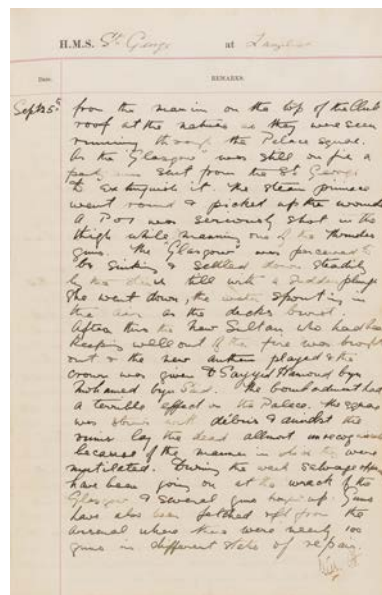 H.M.S. St George at Zanzibar
Date. REMARKS.
Sept 5th from the maxim on the top of the Club
roof at the natives as they were seen
running through the Palace square.
As the "Glasgow" was still on fire a
party was sent from the St George
to extinguish it. The steam pinnace
went round & picked up the wounded
A P.O. was seriously shot in the
thigh while manning one of the Thrushes
guns. The "Glasgow" was perceived to
be sinking & settled down steadily
by the till with a sudden plunge
she went down, the water spouting in
the air as the decks burst.
After this the new Sultan who had been
keeping well out of the fire was brought
out & the new anthem played & the
crown was given to Sayyid Hamoud byn
Mohamed byn Said. The bombardment had
a terrible effect on the Palace. The square
was strewn with débris & amidst the
ruins lay the dead allmost unrecognisable
because of the manner in which they were
mutilated. During the week salvage
have been going on at the wreck of the
Glasgow & several guns up. Guns
have also been fetched off from the
arsenal where there were nearly 100
guns in different state of repair.